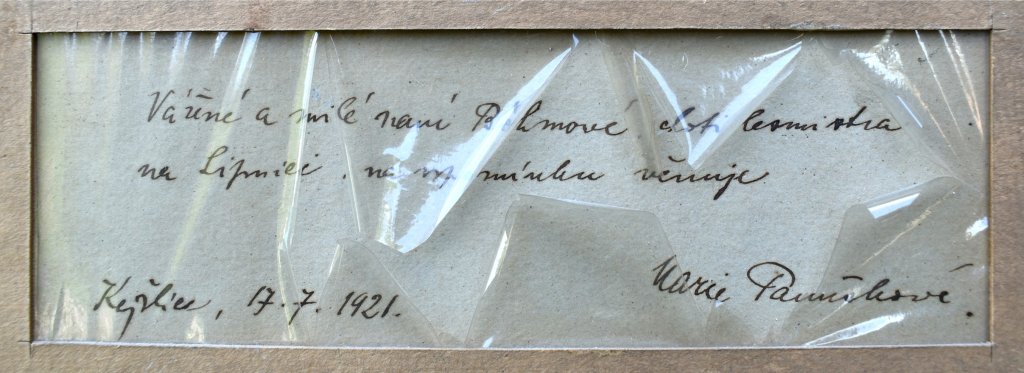 Vážené a milé paní Böhmové, choti lesmistra
na Lipnici, na vzpomínku věnuje
Kejžlice, 17.7.1921.
Marie Panušková.